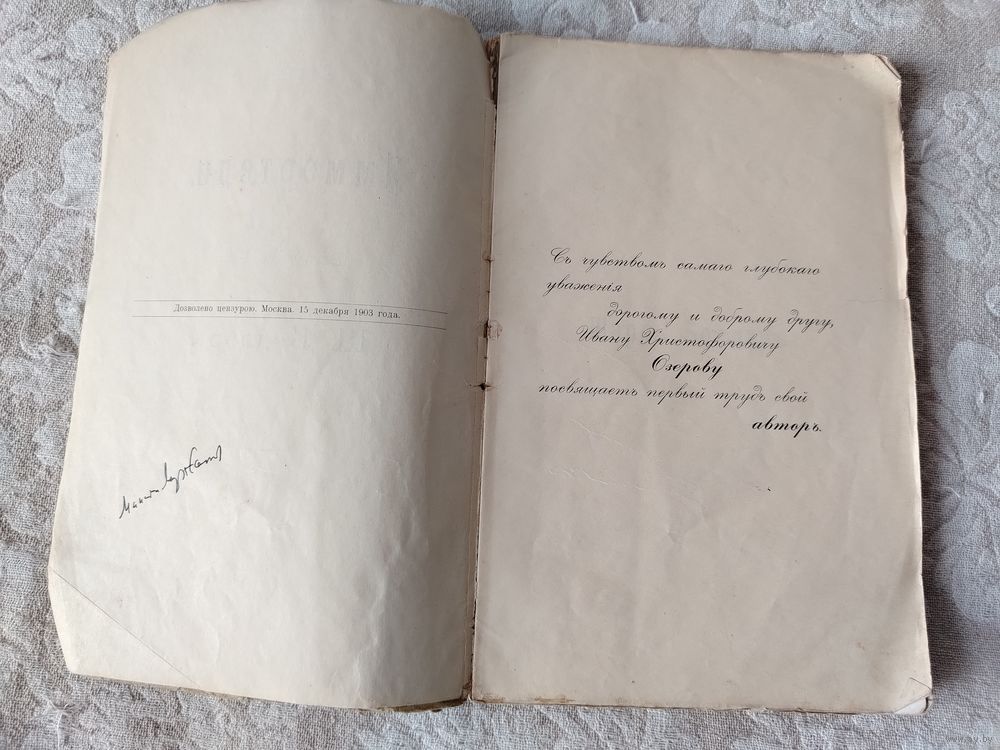 Дозволено цензурою. Москва. 15 декабря 1903 года.
Съ чувствомъ самаго глубокаго
уваженія
дорогому и доброму другу,
Ивану Христофоровичу
Озерову
посвящаетъ первый трудъ свой
авторъ.